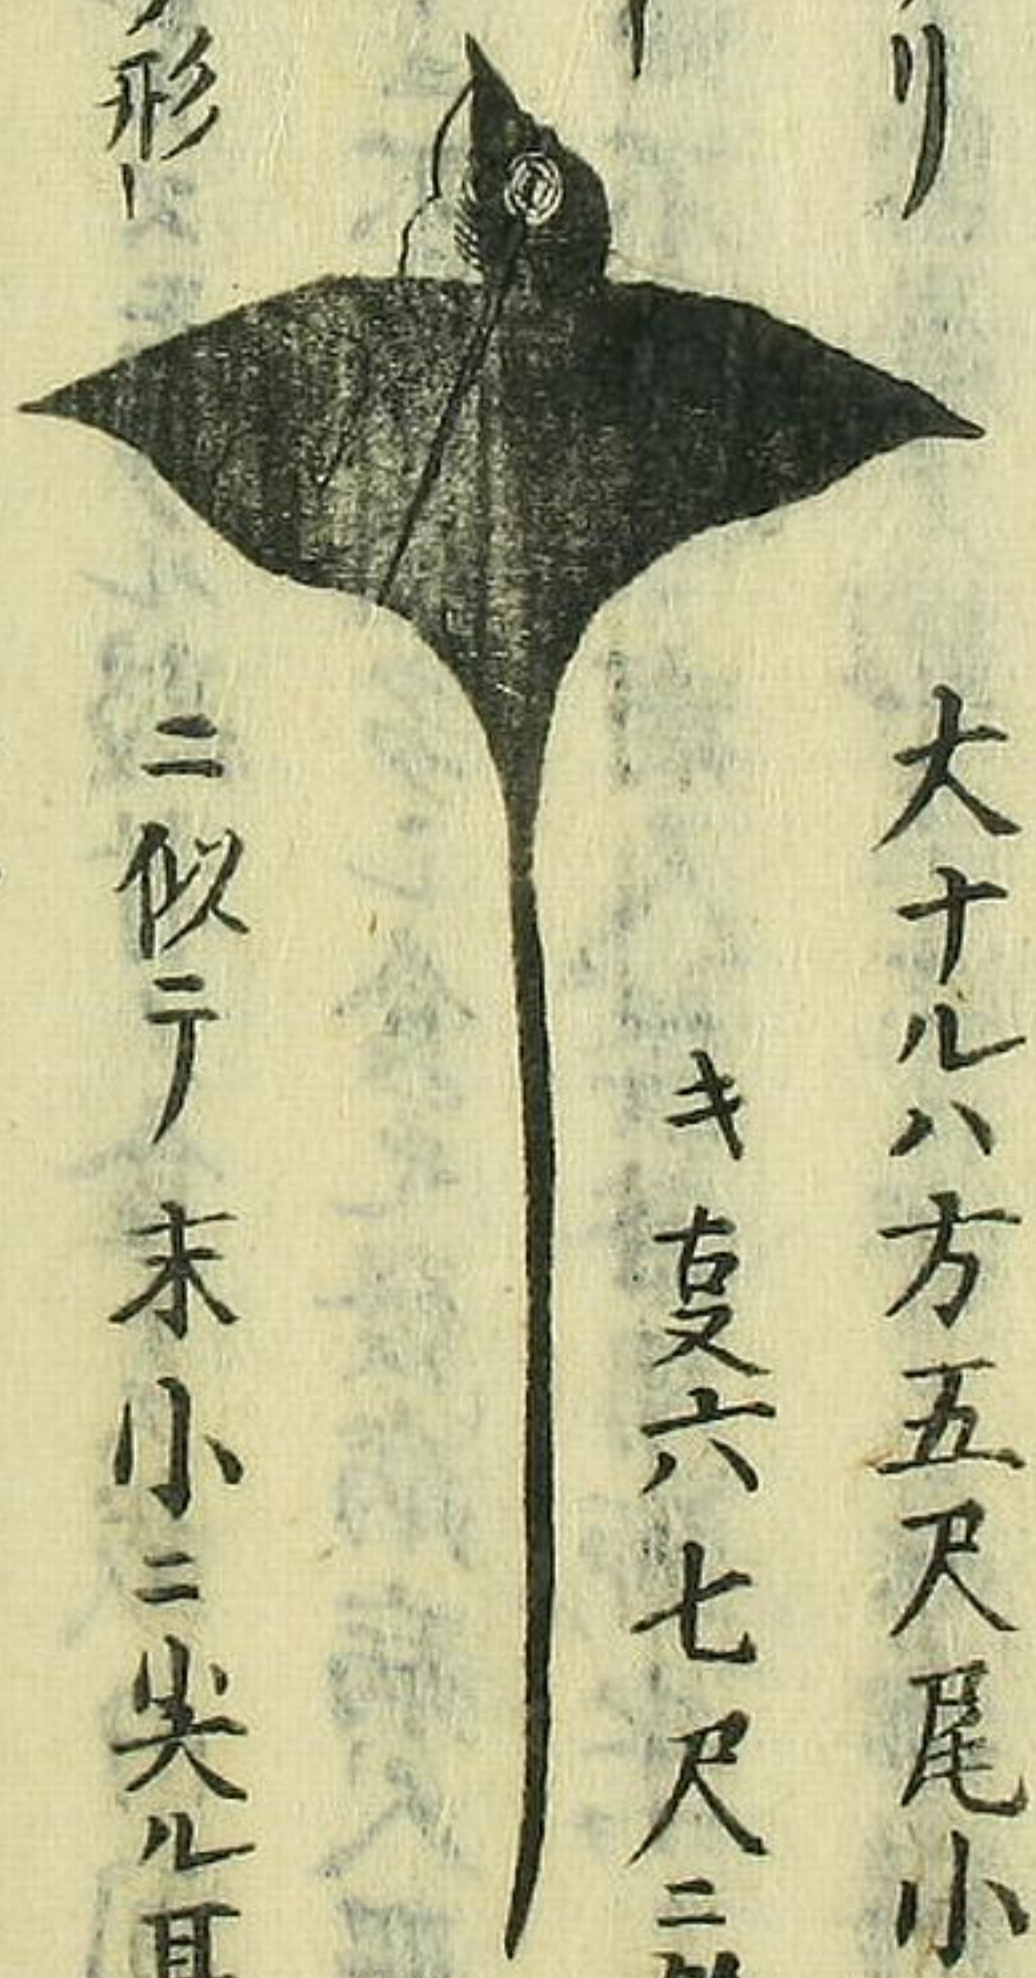 リ
大ナルハ方五尺尾小
キ叓六七尺ニ
形
ニ似テ末小ニ尖ル耳